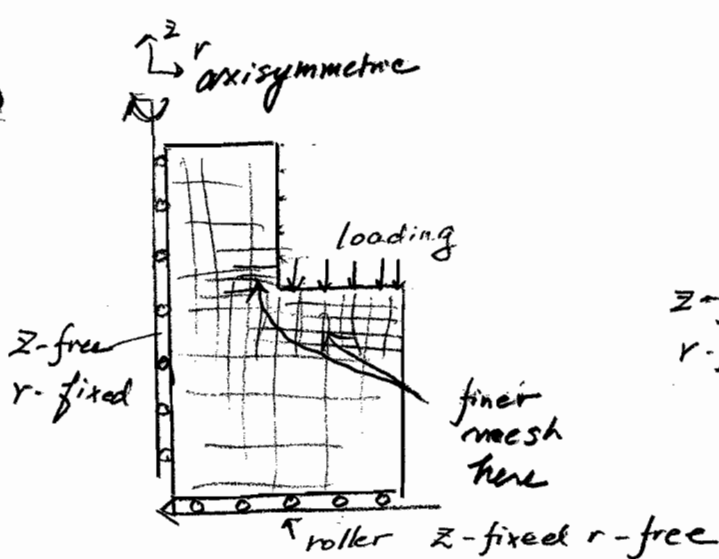 z
r
axisymmetric
loading
z-free
r-fixed
z-
r-
finer
mesh
here
roller z-fixed r-free